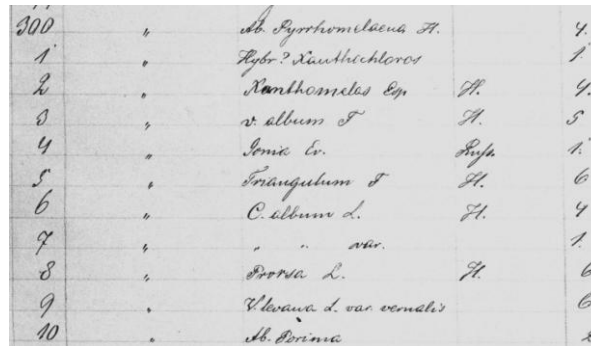 300 " Ab. Pyrrhomelaena H. 4.
1 " Hybr? Xanthochloros 1.
2 " Xanthomelas Esp H. 4.
3 " v. album F H. 5
4 " Ionia Ev. Russ. 1.
5 " Triangulum F H. 6
6 " C. album L. H. 4
7 " " " var. 1.
8 " Prorsa L. H. 6
9 " V. levana L. var vernalis 6
10 " Ab. Porima 2